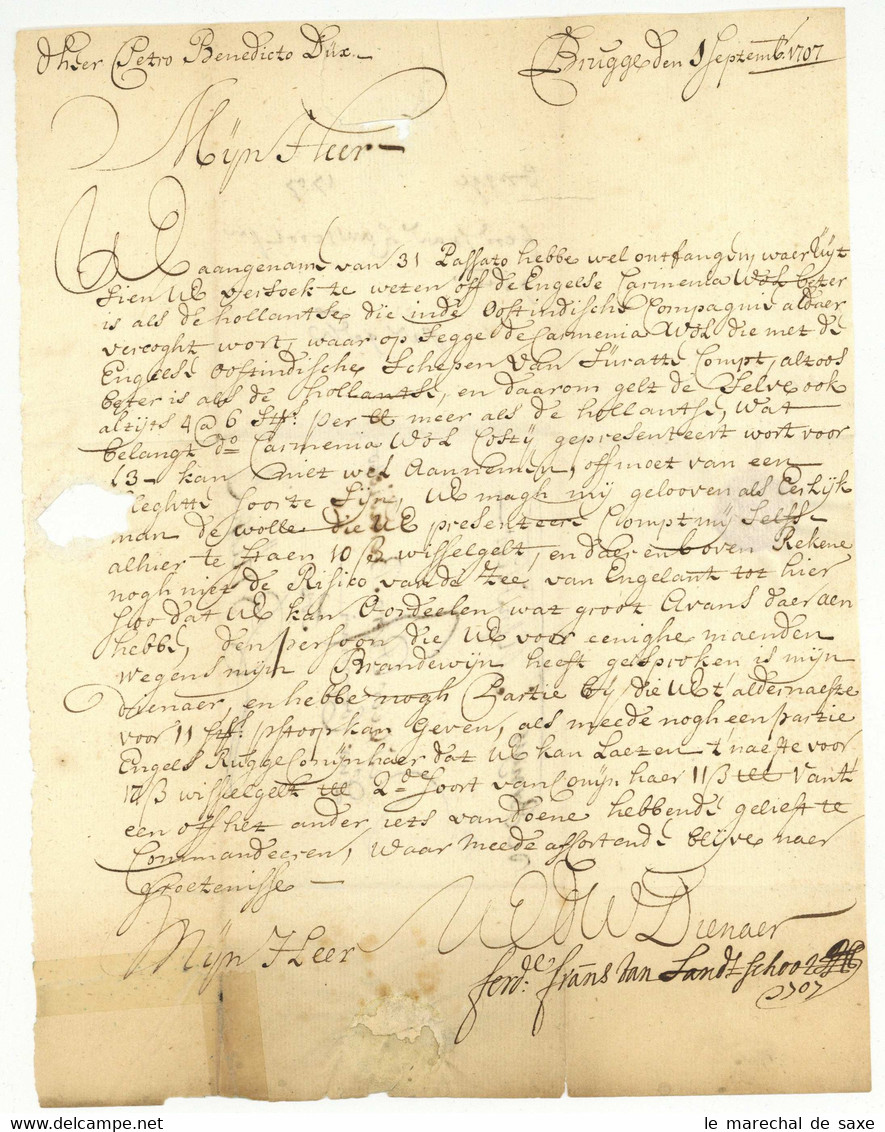 dheer Petro Benedicto Düx.
Brugge den 1 Septemb. 1707
Mijn Heer
UE aangename van 31 Passato hebbe wel ontfangen, waer uijt
sien UE versoek te weten off de Engelse Carmenia Wol beter
is als de hollantse die inde Oostindische Compagnie aldaer
vercoght wort, waar op segge de Carmenia Wol die met de
Engelse Oostindische Schepen van Süratte Compt, altoos
beter is als de hollantse, en daarom gelt de selve ook
altijts 4 @ 6 stf. per ll meer als de hollantse, wat
belangt do. Carmenia Wol Costij gepresenteert wort voor
13 - kan niet wel Aannemen, off moet van een
sleghtte soorte sijn, UE magh mij gelooven als Eerlijk
man de wolle die UE presenteere Compt mij selfs
alhier te staen 10 ß wisselgelt, en daer en boven Rekene
nogh niet de Risico van de Zee van Engelant tot hier
soo dat UE kan Oordeelen wat groot Avans daer aen
hebbe, den persoon die UE voor eenighe maenden
wegens mijn Brandewijn heeft gesproken is mijn
dienaer, en hebbe nogh Partie bij die UE t'aldernaeste
voor 11 stf. p stoop kan geven, als meede nogh een partie
Engels Rugge Conijnhaer dat UE kan Laeten t'naeste voor
17 ß wisselgelt ll 2de soort van Conijn haer 11 ß ll Vant
een off het ander iets van doene hebbende gelieft te
Commandeeren, waar meede assortende blijve naer
groetenisse
Mijn Heer
UE DW Dienaer
ferde. frans van Landtschoot
1707
le marechal de saxe